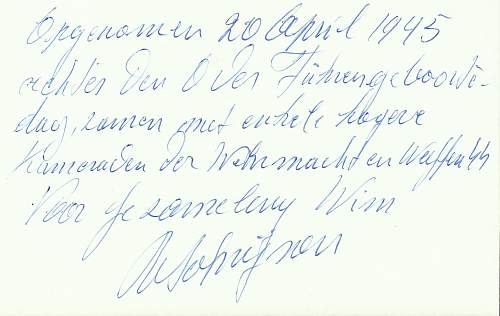 Opgenomen 20 April 1945
achter den Oder Führergeboorte-
dag, samen met enkele hogere
Kameraden der Wehrmacht en Waffen SS
Voor gezameleng Wim